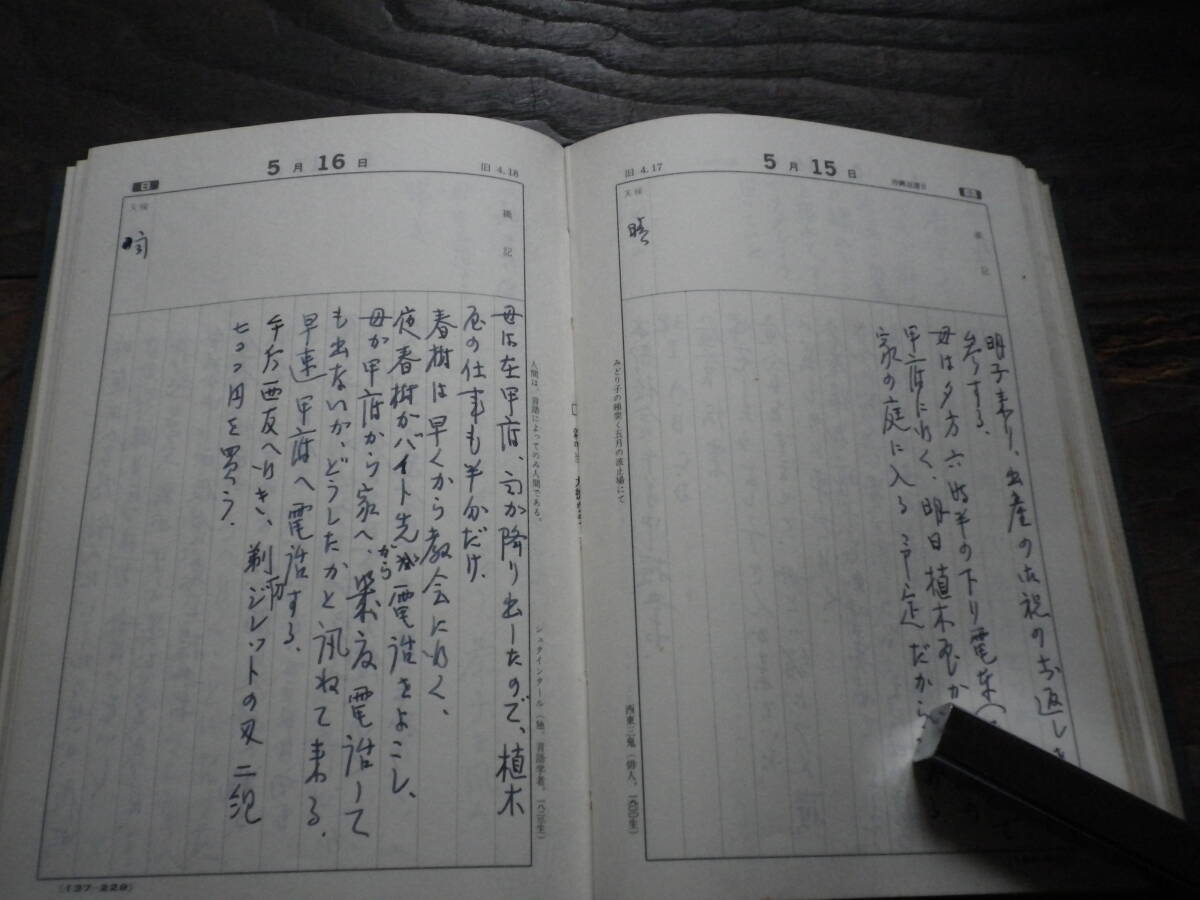 5月15日
旧 4.17
天候
晴
摘記
明子来り、出産の内祝のお返しを
参する。
母は夕方六時半の下り電車
甲府に行く、明日植木屋が
家の庭に入る予定だから
みどり子の
五月の波止場にて
西東三鬼(俳人、一九〇〇生)
5月16日
旧 4.18
日
天候
雨
摘記
母は在甲府、雨が降り出したので、植木
屋の仕事も半分だけ。
春樹は早くから教会に行く、
夜春樹がバイト先から電話をよこし、
母が甲府から家へ、幾度電話して
も出ないが、どうしたかと訊ねて来る。
早速甲府へ電話する。
午后西友へ行き、剃刀ジレットの刃二組
七〇〇円を買う。
人間は、言語によってのみ人間である。
シュタインタール(独、言語学者、一八二三生)
(137-229)